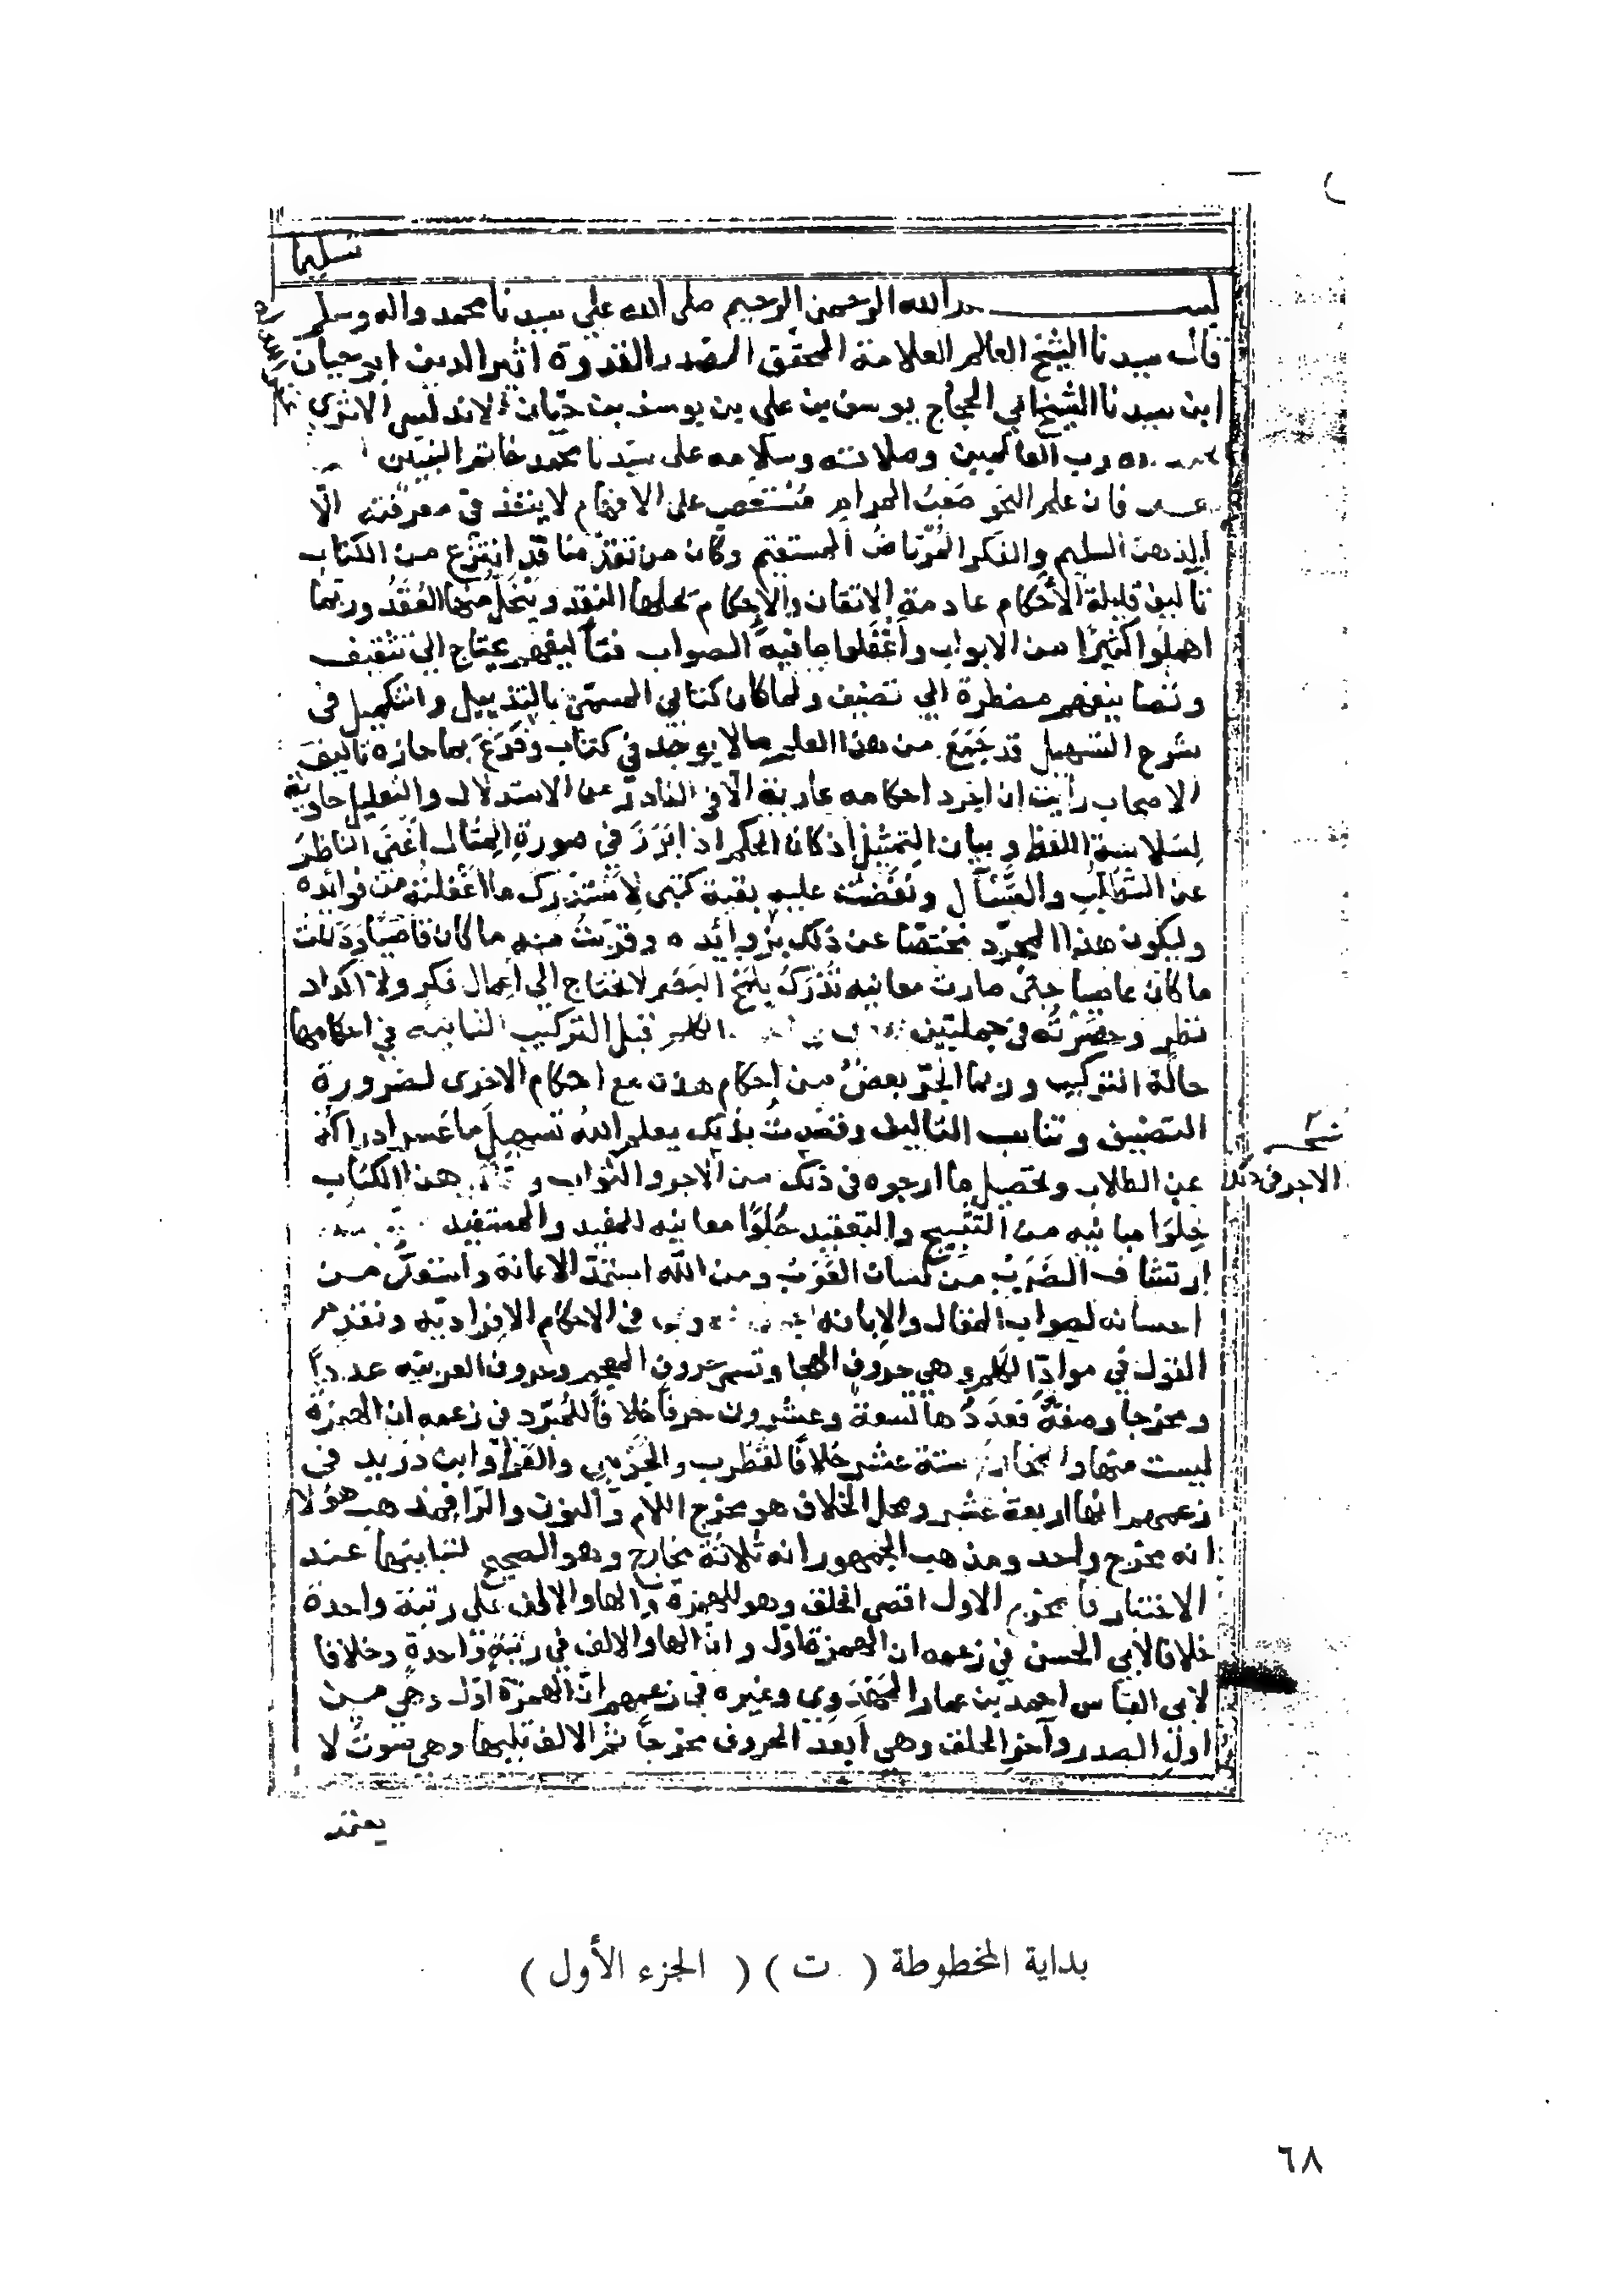 تسليما
بســـم الله الرحمن الرحيم صلى الله على سيدنا محمد واله وسلم
قال سيدنا الشيخ العالم العلامة المحقق الصدر القدوة اثير الدين ابو حيان
ابن سيدنا الشيخ ابي الحجاج يوسف بن علي بن يوسف بن حيّان الاندلسى الاثري
رب العالمين وصلاته وسلامه على سيّدنا محمّد خاتم النبيّين
فان علم النحو صَعْبُ المرام مُسْتَعْصٍ على الافهام لا ينفذ في معرفته الّا
الذهن السليم والفكر المُرتاضُ المستقيم وكان من تقدّمنا قد انتزع من الكتاب
تآليف قليلة الأحكام عادمة الاتقان والإحكام يَحلها النقد ويَنْحَلُّ منها العُقَدُ وربّما
اهملوا كثيرًا من الابواب واَغْفَلوا ما فيه الصواب فتآليفهم يحتاج الى تثقيف
وتصانيفهم مضطرة الي تصنيف ولما كان كتابي المسمّى بالتذييل والتكميل في
شرح التسهيل قد جَمَعَ من هذا العلم ما لا يوجد في كتاب وفَرَعَ بما حازه تآليفَ
الاصحاب رأيت ان اجرد احكامه عارية الّا في النادر من الاستدلال والتعليل حاوية
لِسَلاسَة اللفظ وبيان التمثيل اذ كان الحكم اذا بَرَزَ في صورةِ المِثال اَغْنَى الناظرَ
عن التَّطَلُّبِ والتَّسْآل ونَفَضْتُ عليه بقية كتبى لِاَسْتَدْرِكَ ما اَغْفَلْتُه من فوائده
وليكون هذا المجرّد مختصّا عن ذلك بزوائده وقرّبتُ منه ما كان قاصيًا وذَلَّلتُ
ما كان عاصيا حتّى صارت معانيه تُدْرَكُ بلَمْحِ البَصَر لا تحتاج الي اِعمال فكر ولا اكداد
نظر وحَصَرْتُه في جملتين الكلم قبل التركيب الثانية في احكامها
حالَة التركيب وربما انجرّ بعضُ من احكام هذه مع احكام الاخرى لضرورة
التصنيف وتناسب التاليف وقصدتُ بذلك يعلم اللهُ تسهيلَ ما عَسر ادراكه
على الطلاب وتحصيل ما ارجوه في ذلك من الأجر والثواب و هذا الكتاب
الاجر في ذلك
حِلوًا مبانيه من التَّقْبيح والتعقيد حُلوًا معانيه للمفيد والمستفيد
ارتشاف الضَرَب من لسان العَرَب ومن اللّه استمدّ الاعانة واستنزل من
احسانه لصواب المقال والإبانه في الاحكام الافراديّه ونقدم
القول في موادّ الكلم وهي حروف الهجا وتسمى حروف المعجم وحروف العربيّه عددًا
ومخرجا وصفةً فعَدَدُها تسعة وعشرون حرفاً خلافاً للمُبَرّد في زعمه ان الهمزة
ليست منها والمخارج ستة عشر خلافًا لقُطْرب والجَرْمي والفرّا وابن دُرَيد في
زعمهم انها اربعة عشر ومحل الخلاف هو مخرج اللام والنون والرا فمذهب هؤلا
انه مخرج واحد ومذهب الجمهور انه ثلاثة مخارج وهو الصحيح لتباينها عند
الاختبار فالمخرج الاول اقصى الحلق وهو للهمزة والها والالف على رتبة واحدة
خلافا لأبي الحسن في زعمه ان الهمزة اوّل وانّ الها والالف في رتبةٍ واحدةٍ وخلافا
لابى العبّاس احمد بن عمار المَهْدَوي وغيره في زعمهم انّ الهمزة اوّل وهي من
اول الصدر وآخر الحلق وهي اَبعَد الحروف مخرجاً ثم الالف تليها وهي صَوتٌ لا
يعتمد
بداية المخطوطة ( ت ) ( الجزء الأول )
٦٨